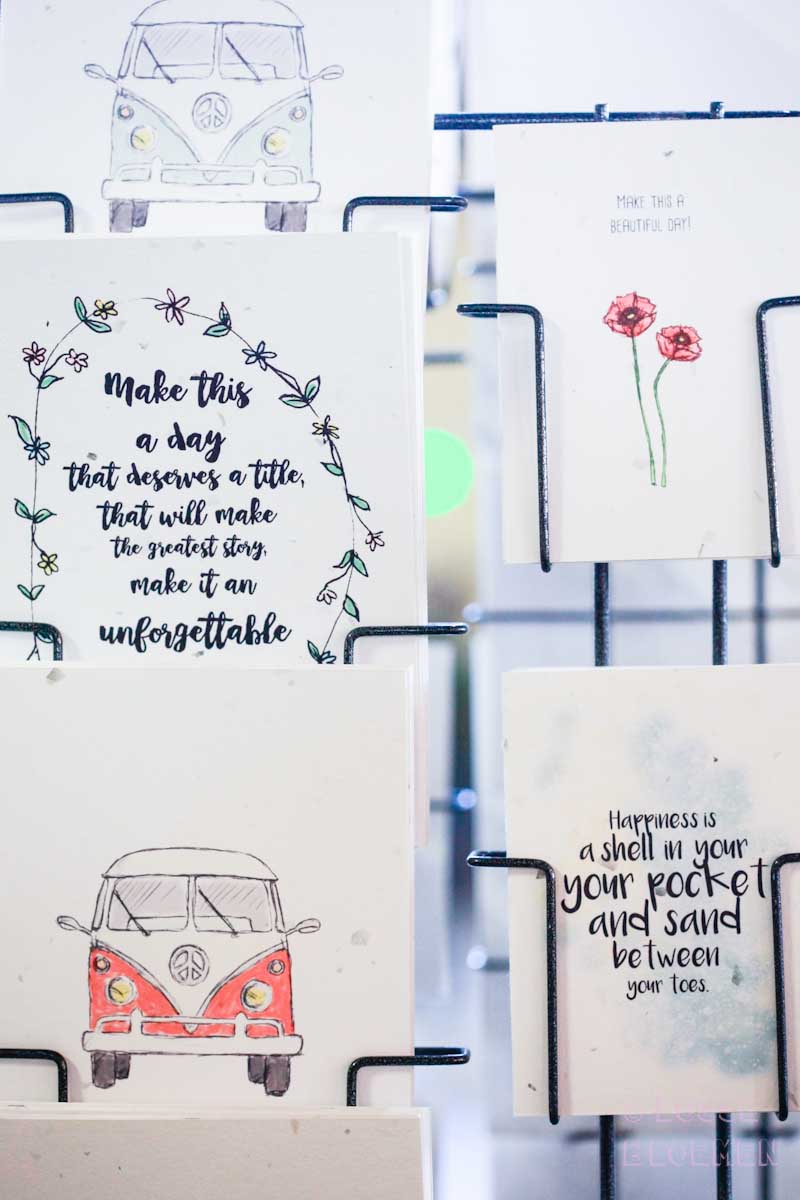 MAKE THIS A
BEAUTIFUL DAY!
Make this
a day
that deserves a title,
that will make
the greatest story,
make it an
unforgettable
Happiness is
a shell in your
your pocket
and sand
between
your toes.
BLOEMEN